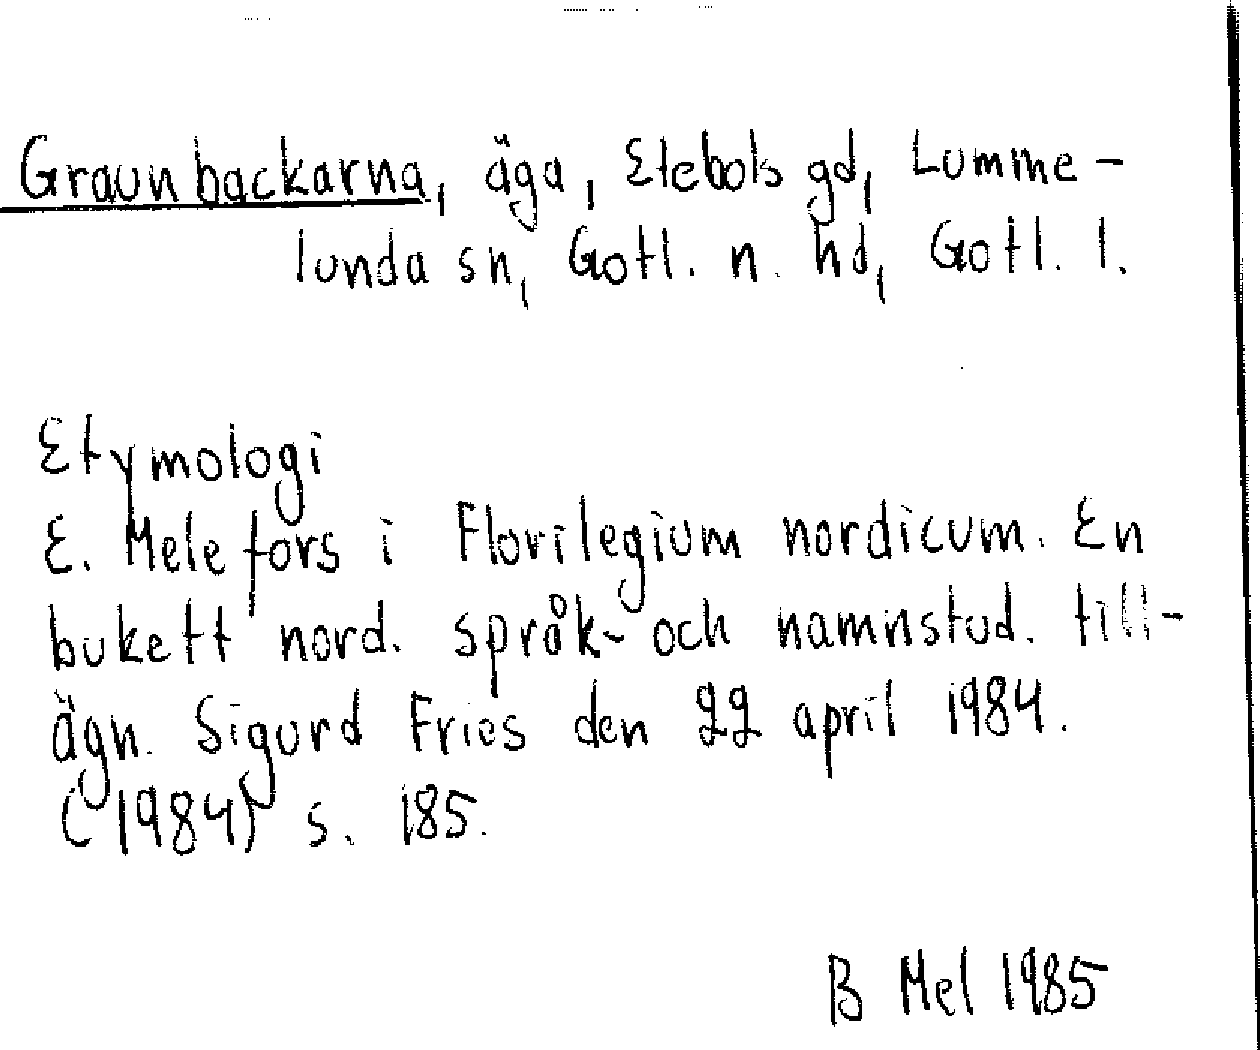 Graunbackarna, äga, Etebols gd, Lumme-
lunda sn, Gotl. n. hd, Gotl. l.
Etymologi
E. Melefors i Florilegium nordicum. En
bukett nord. språk- och namnstud. till-
ägn. Sigurd Fries den 22 april 1984.
(1984) s. 185.
B Mel 1985